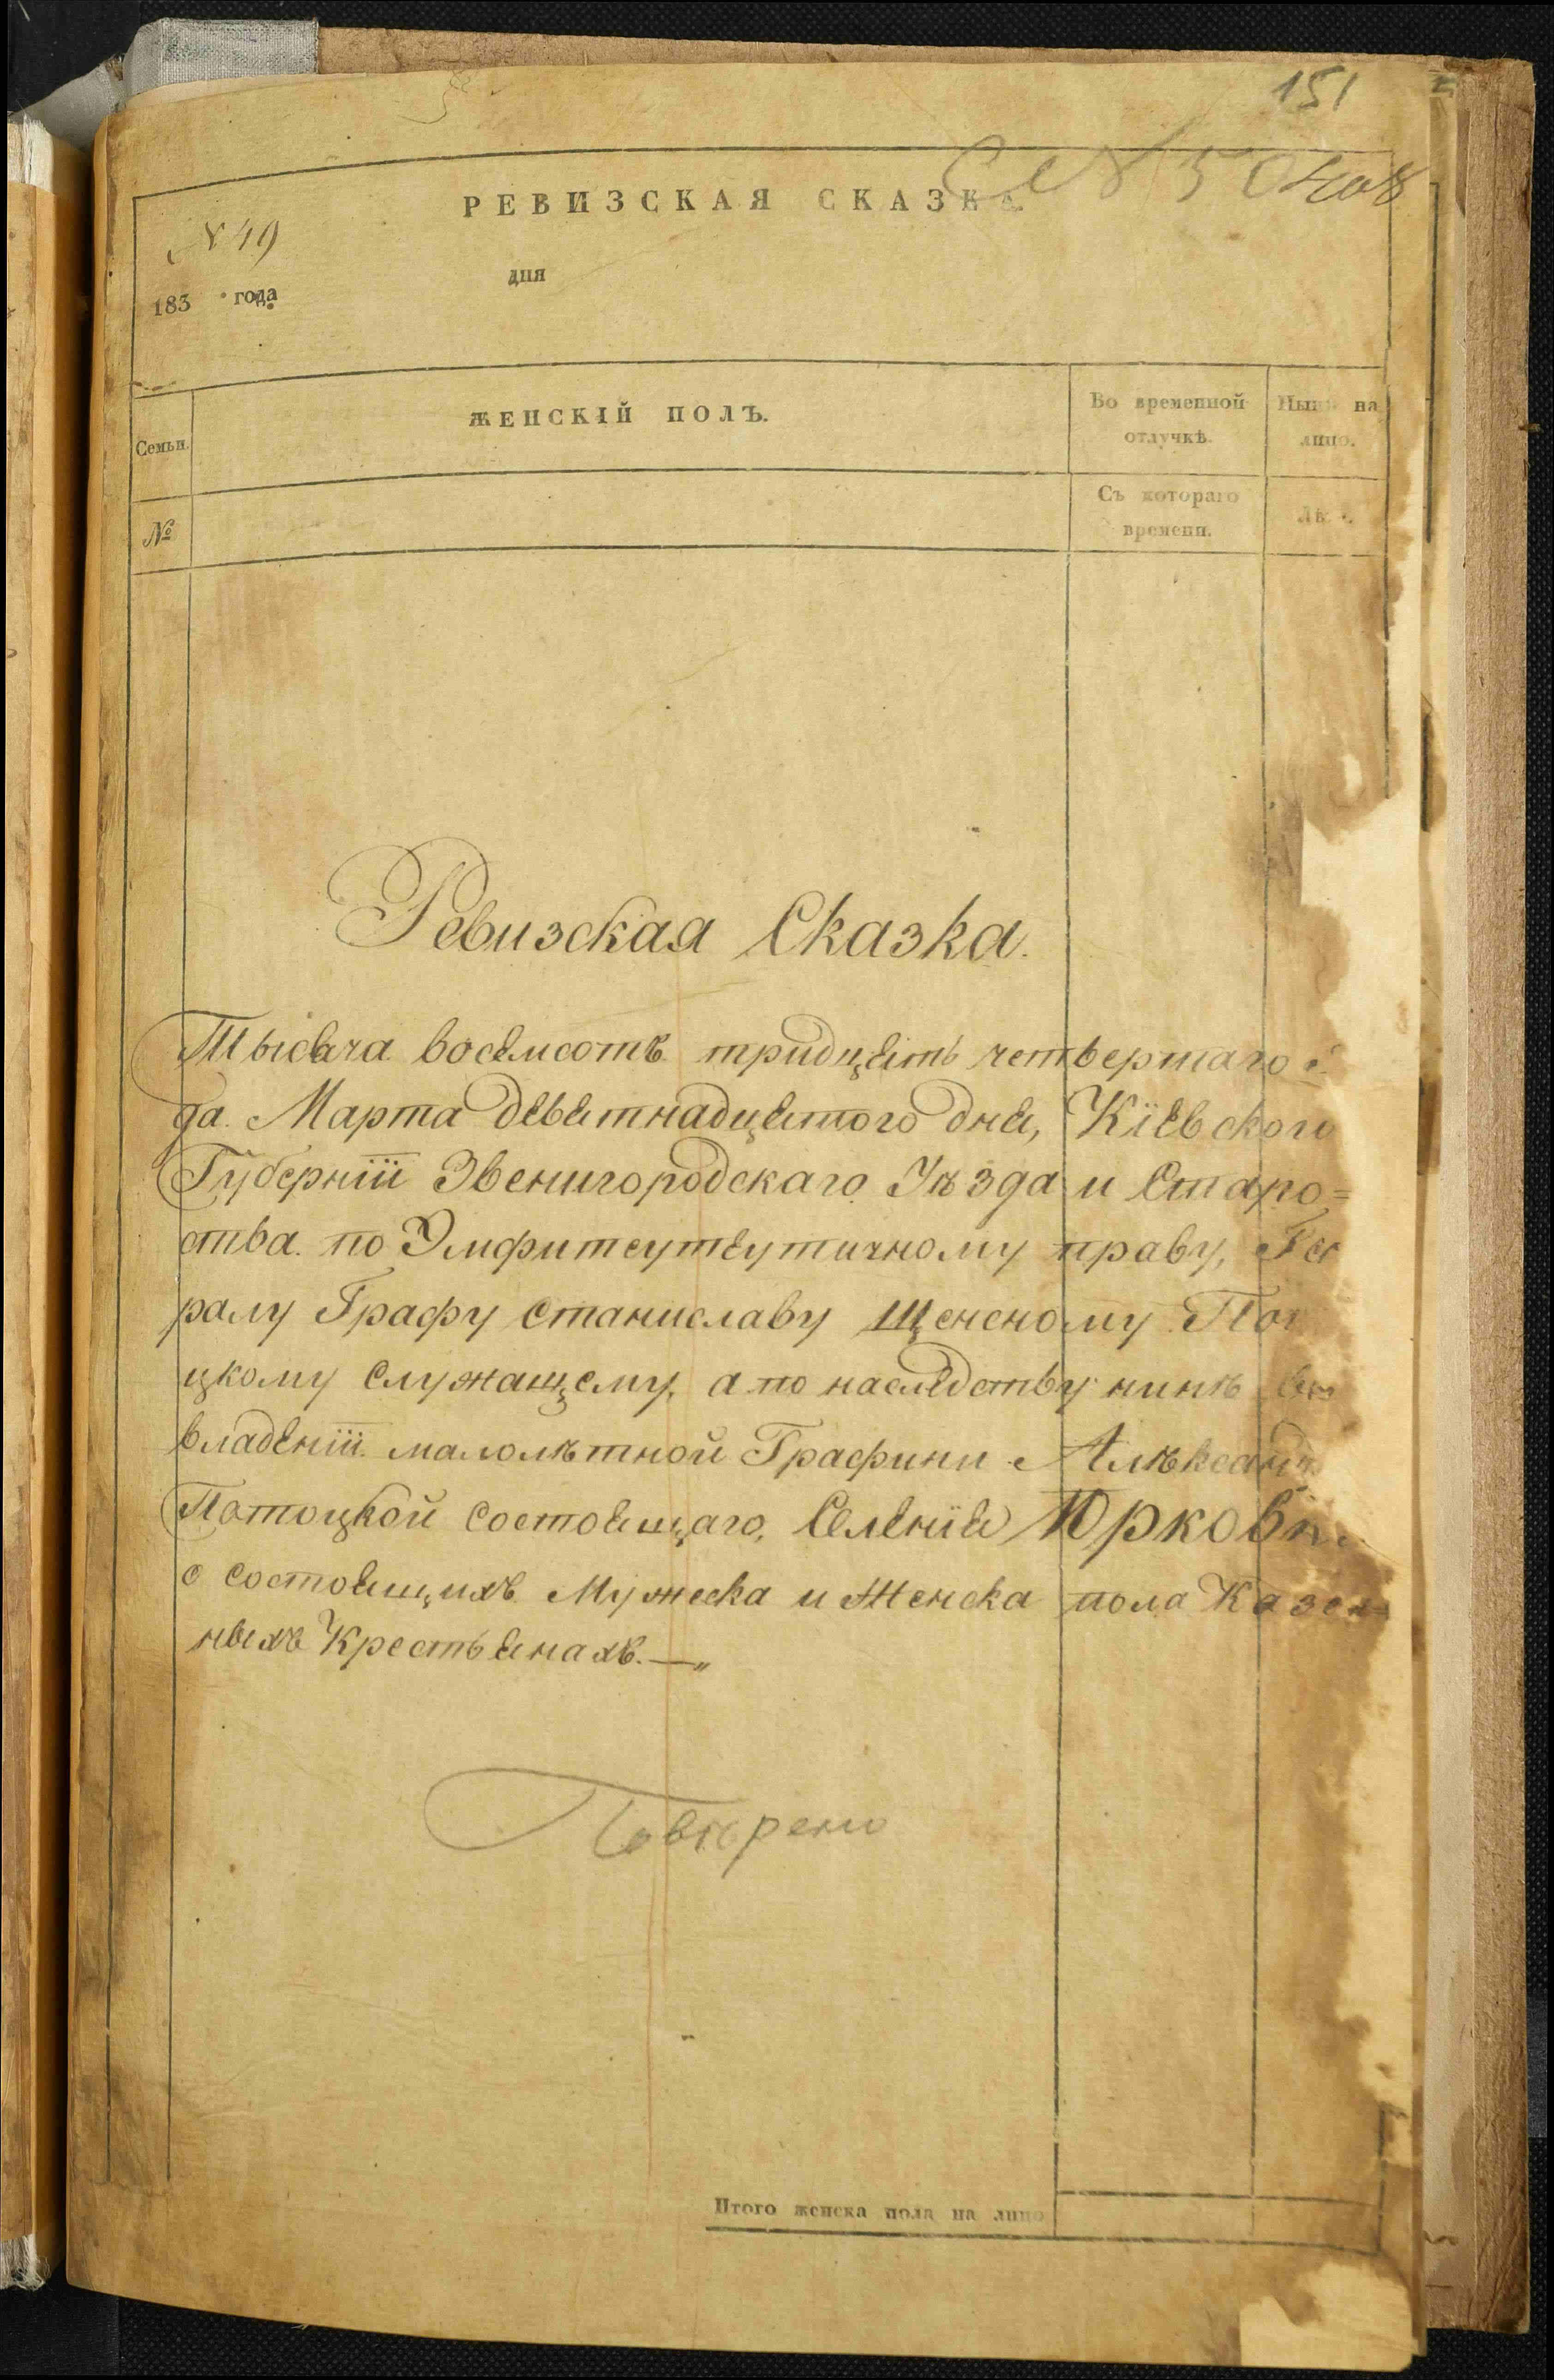 151
РЕВИЗСКАЯ СКАЗКА.
N 49
183 года
дня
Семьи.
ЖЕНСКІЙ ПОЛЪ.
Во временной отлучкѣ.
Нынѣ на лицо.
№
Съ котораго времени.
Лѣ
Ревизская Сказка.
Тысеча восемсотъ тридцеть четвертаго
да. Марта деветнадцетого дне, Кіевского
Губерніи Звенигородскаго Уѣзда и Старо=
ства. по Эмфитеутеутичному праву, Ге
ралу Графу Станиславу Щенсному По
цкому служащему, а по наследству нинѣ
владеніи малолѣтной Графини Алѣксанд
Потоцкой состоещаго, Селеніе Юрковк
о состоещихъ Мужеска и Женска пола Казен
ныхъ Крестьенахъ. —„
Повѣрено
Итого женска пола на лицо